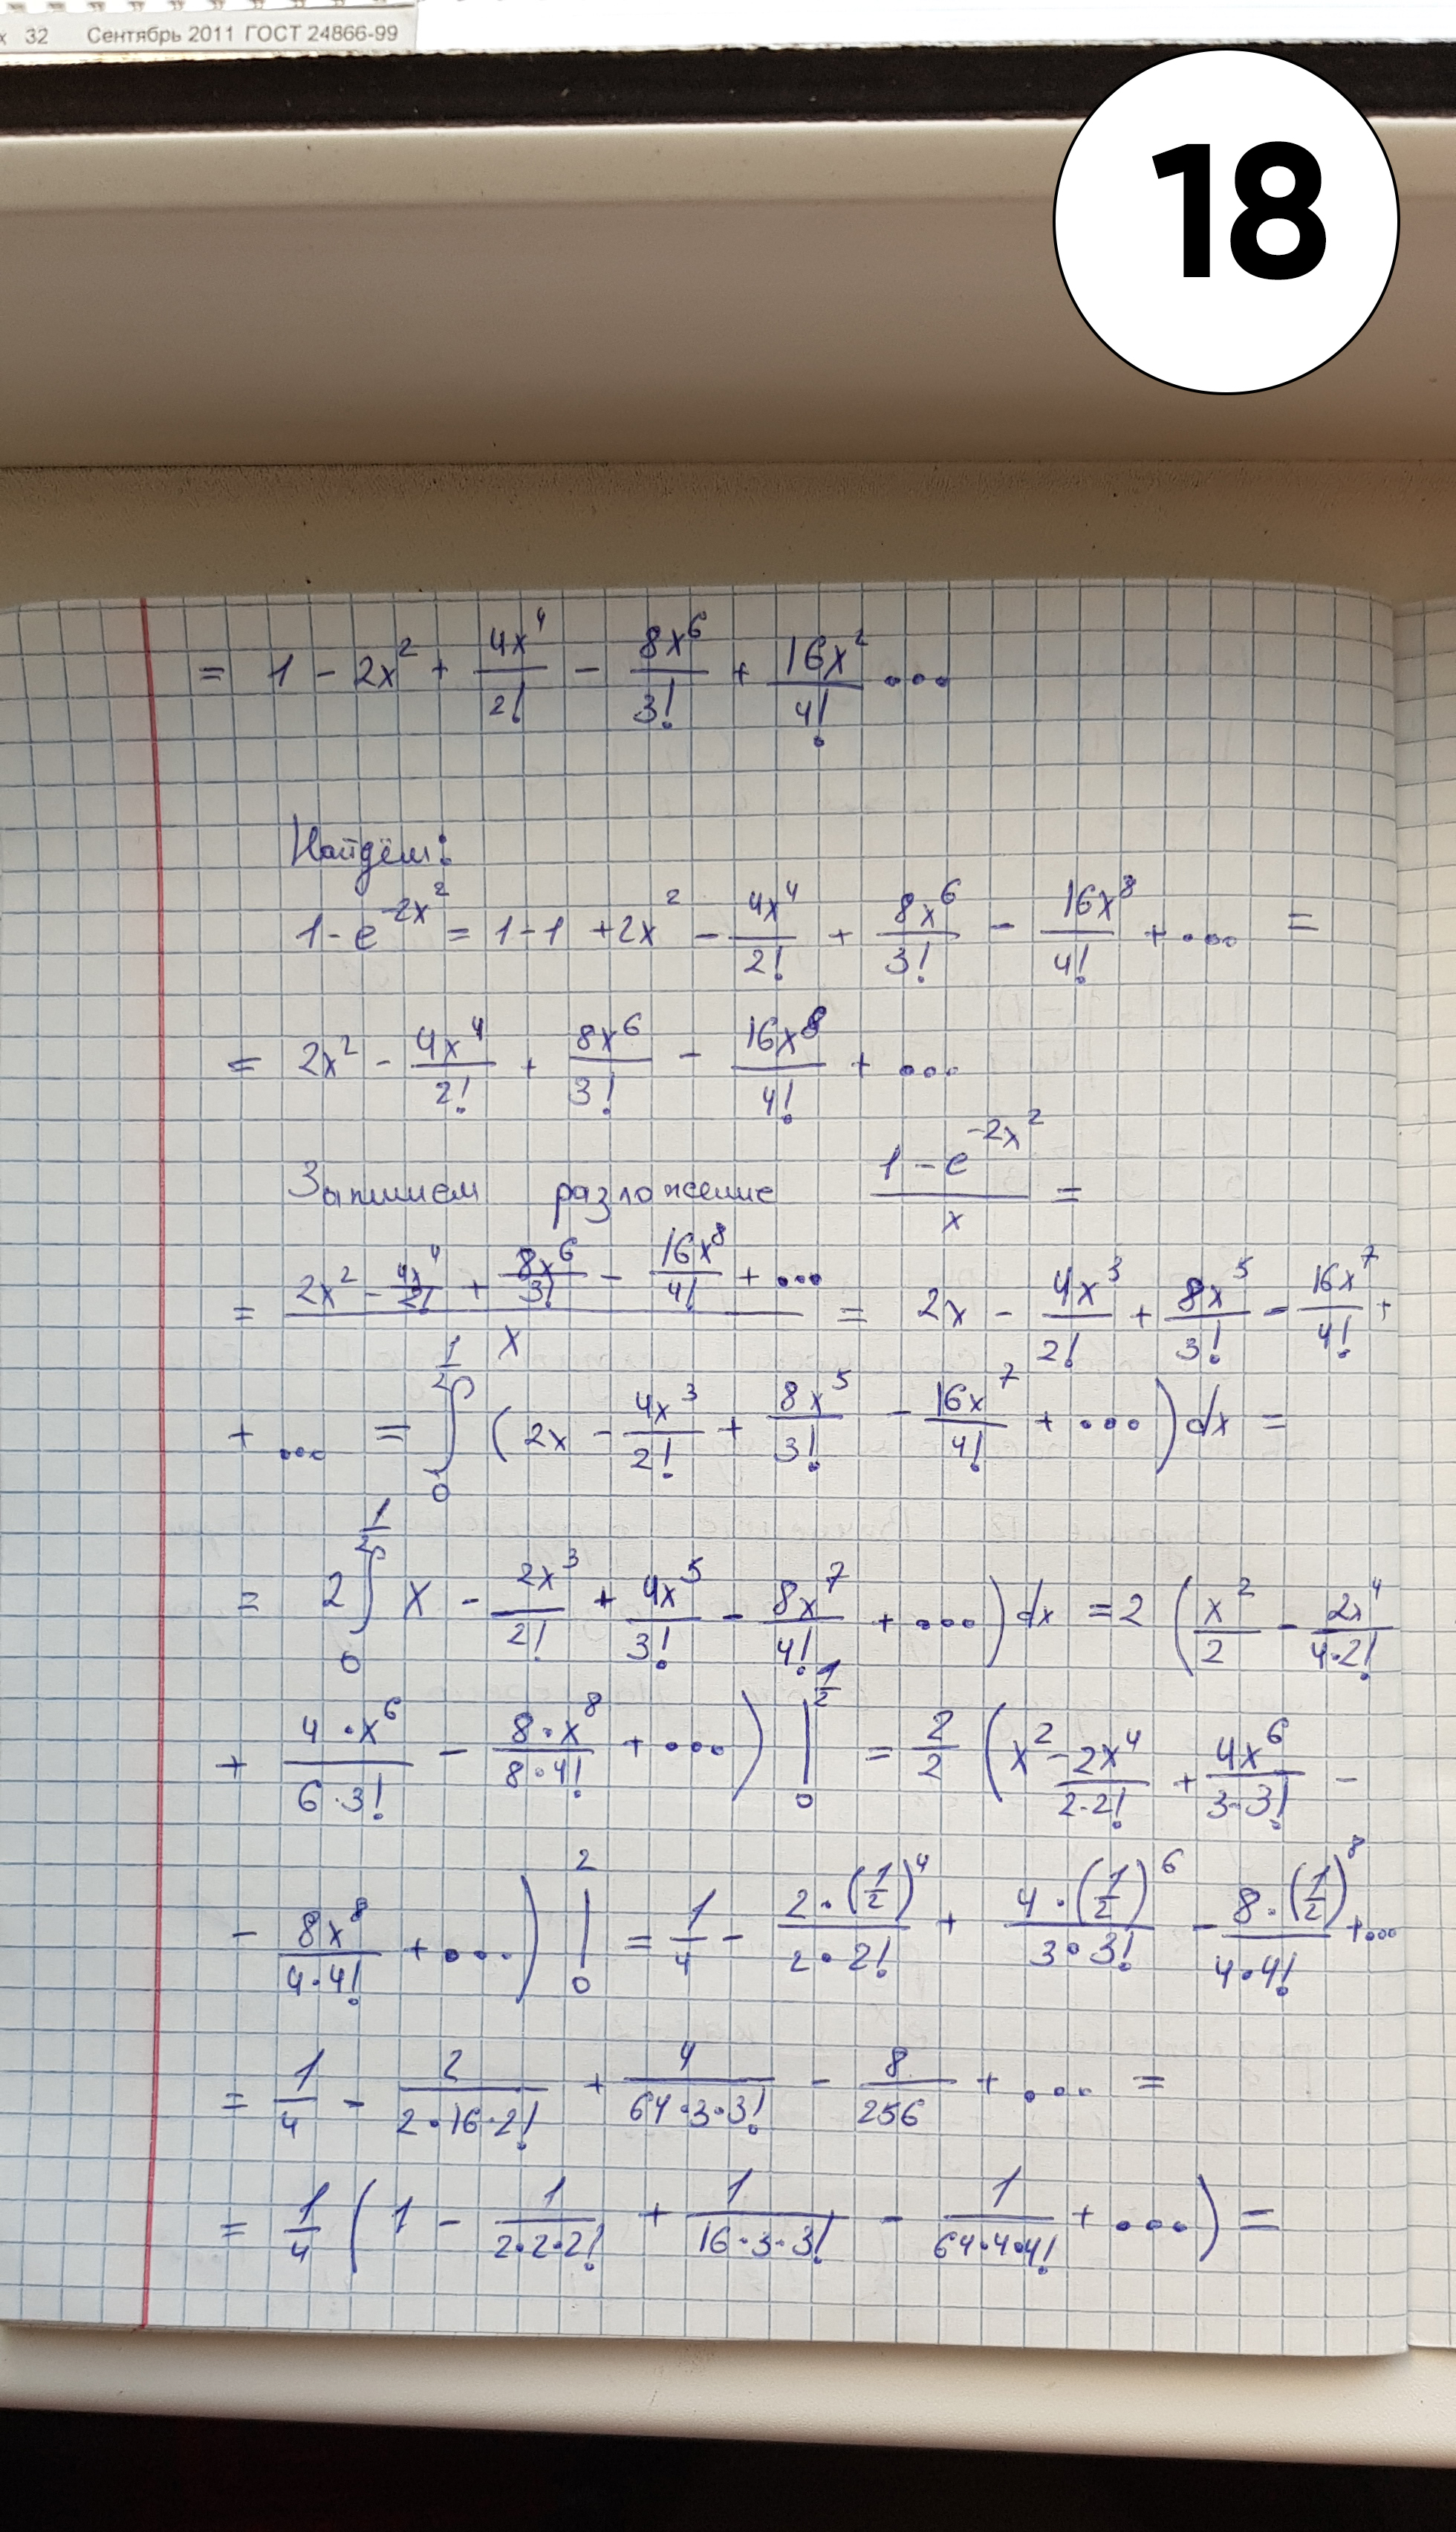 х 32 Сентябрь 2011 ГОСТ 24866-99
18
= 1 - 2x² + 4x⁴/2! - 8x⁶/3! + 16x²/4! ...
Найдём:
1 - e^(-2x²) = 1-1 + 2x² - 4x⁴/2! + 8x⁶/3! - 16x⁸/4! + ... =
= 2x² - 4x⁴/2! + 8x⁶/3! - 16x⁸/4! + ...
Запишем разложение (1 - e^(-2x²))/x =
= (2x² - 4x⁴/2! + 8x⁶/3! - 16x⁸/4! + ...)/x = 2x - 4x³/2! + 8x⁵/3! - 16x⁷/4! +
+ ... = ∫₀^(1/2) (2x - 4x³/2! + 8x⁵/3! - 16x⁷/4! + ...) dx =
= 2 ∫₀^(1/2) x - 2x³/2! + 4x⁵/3! - 8x⁷/4! + ...) dx = 2 (x²/2 - 2x⁴/(4·2!)
+ 4·x⁶/(6·3!) - 8·x⁸/(8·4!) + ...) |₀^(1/2) = 2/2 (x² - 2x⁴/(2·2!) + 4x⁶/(3·3!) -
- 8x⁸/(4·4!) + ...) |₀² = 1/4 - 2·(1/2)⁴/(2·2!) + 4·(1/2)⁶/(3·3!) - 8·(1/2)⁸/(4·4!) + ...
= 1/4 - 2/(2·16·2!) + 4/(64·3·3!) - 8/256 + ... =
= 1/4 (1 - 1/(2·2·2!) + 1/(16·3·3!) - 1/(64·4·4!) + ...) =